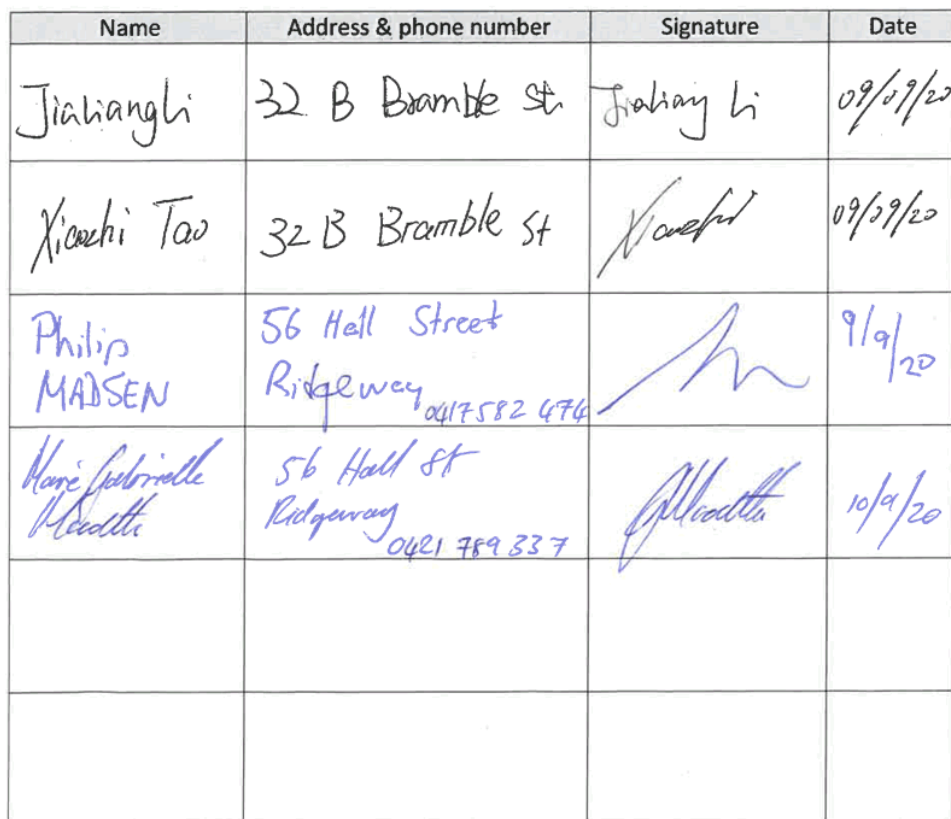 Name Address & phone number Signature Date
Jialiang Li 32 B Bramble St Jialiang Li 09/09/20
Xiaozhi Tao 32 B Bramble St Xiaozhi 09/09/20
Philip 56 Hall Street 9/9/20
MADSEN Ridgeway 0417 582 474
Marie Gabrielle 56 Hall St 10/9/20
Ridgeway
0421 789 337